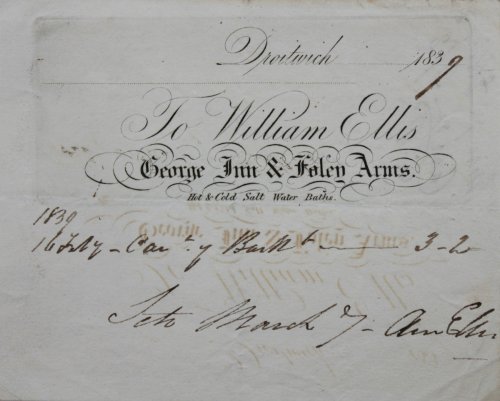 Droitwich 1839
To William Ellis
George Inn & Foley Arms.
Hot & Cold Salt Water Baths.
1839
16 Feby - Car. of 3-2
March 7 - Ann Ellis